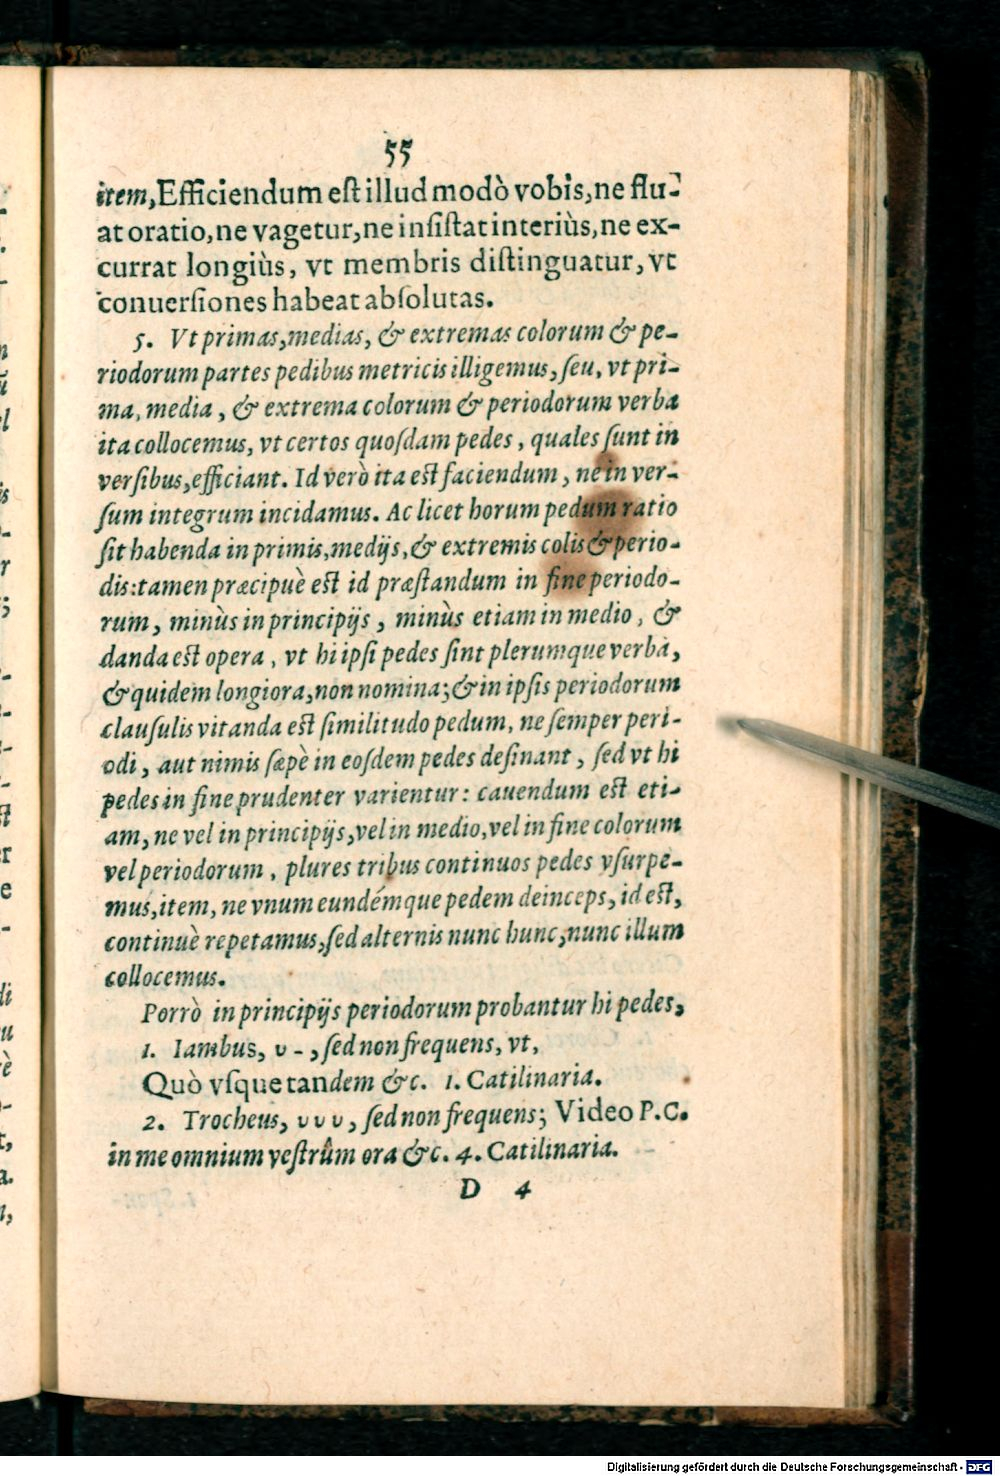 55
item, Efficiendum eſt illud modò vobis, ne flu-
at oratio, ne vagetur, ne inſiſtat interiùs, ne ex-
currat longiùs, vt membris diſtinguatur, vt
conuerſiones habeat abſolutas.
5. Vt primas, medias, & extremas colorum & pe-
riodorum partes pedibus metricis illigemus, ſeu, vt pri-
ma, media, & extrema colorum & periodorum verba
ita collocemus, vt certos quoſdam pedes, quales ſunt in
verſibus, efficiant. Id verò ita eſt faciendum, ne in ver-
ſum integrum incidamus. Ac licet horum pedum ratio
ſit habenda in primis, medijs, & extremis colis & perio-
dis: tamen præcipuè eſt id præſtandum in fine periodo-
rum, minùs in principijs, minùs etiam in medio, &
danda eſt opera, vt hi ipſi pedes ſint plerumque verba,
& quidem longiora, non nomina; & in ipſis periodorum
clauſulis vitanda eſt ſimilitudo pedum, ne ſemper peri-
odi, aut nimis ſæpè in eoſdem pedes deſinant, ſed vt hi
pedes in fine prudenter varientur: cauendum eſt eti-
am, ne vel in principijs, vel in medio, vel in fine colorum
vel periodorum, plures tribus continuos pedes vſurpe-
mus, item, ne vnum eundémque pedem deinceps, id eſt,
continuè repetamus, ſed alternis nunc hunc, nunc illum
collocemus.
Porrò in principijs periodorum probantur hi pedes,
1. Iambus, υ - , ſed non frequens, vt,
Quò vſque tandem &c. 1. Catilinaria.
2. Trocheus, υ υ υ, ſed non frequens; Video P.C.
in me omnium veſtrûm ora &c. 4. Catilinaria.
D 4
Digitalisierung gefördert durch die Deutsche Forschungsgemeinschaft - DFG